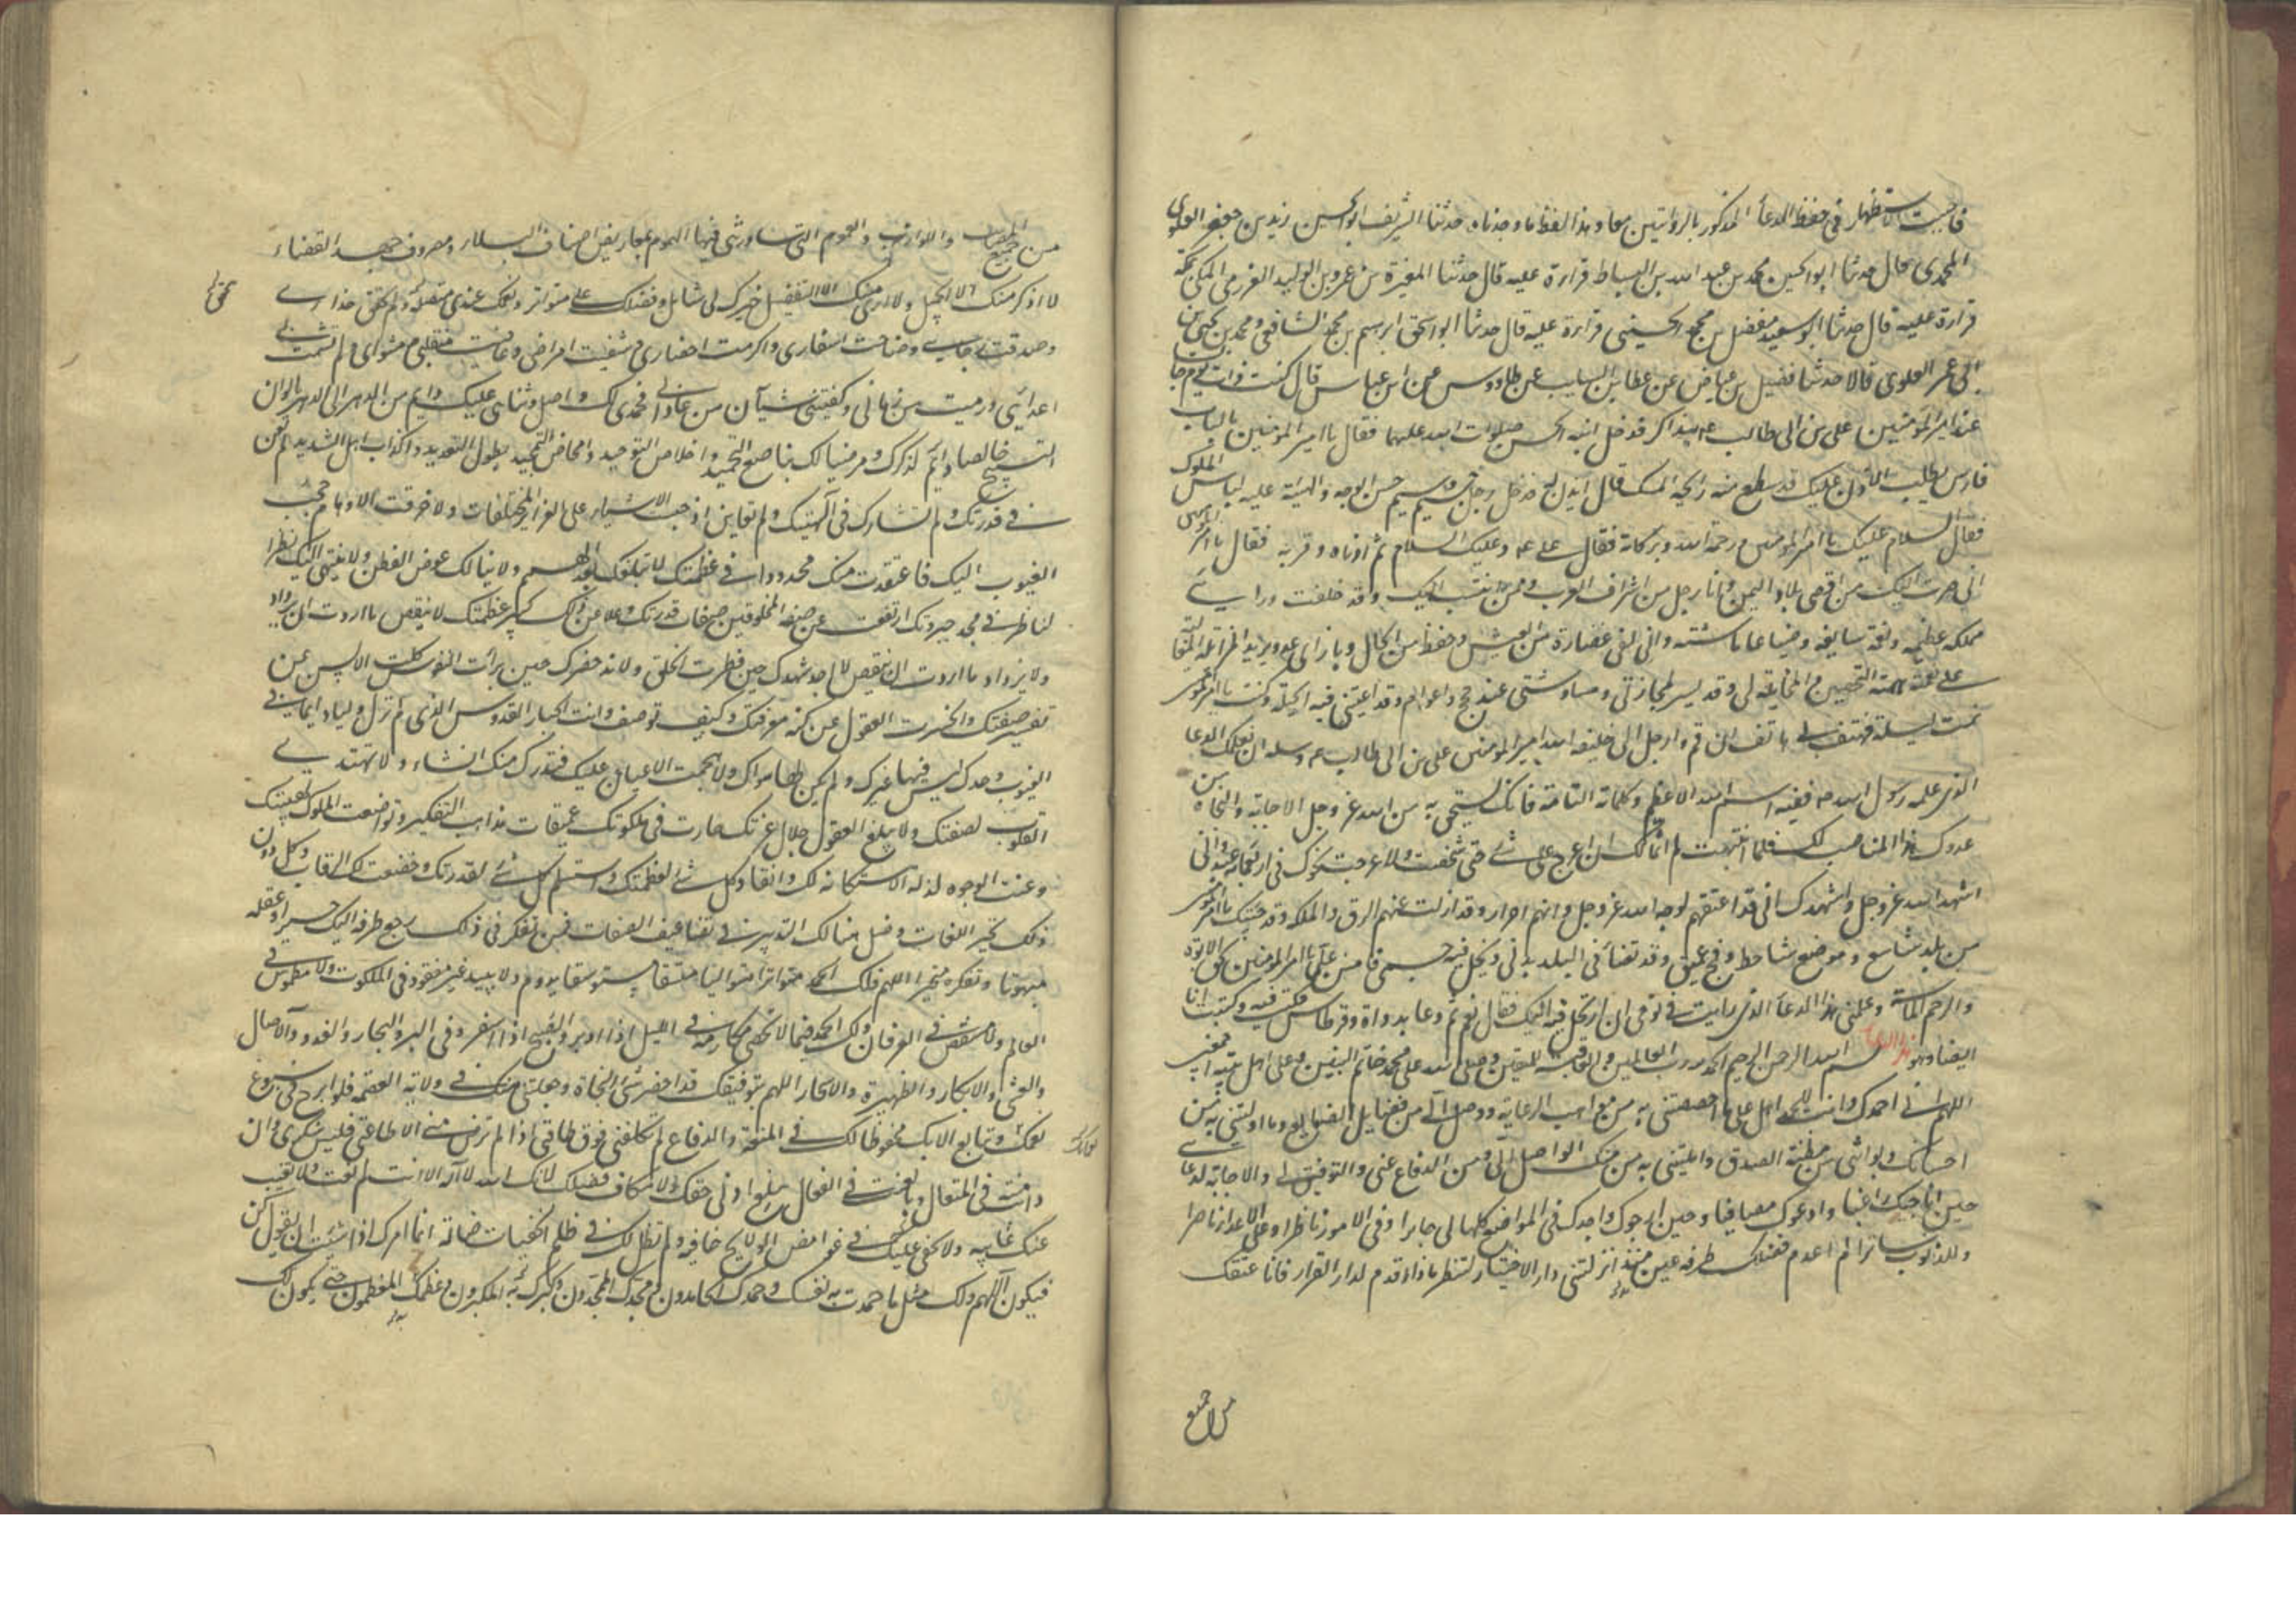 فاحببت الاستظهار فى حفظ الدعاء المذكور بالروايتين معا وهذا لفظ ما وجدناه حدثنا الشريف ابو الحسين زيد بن جعفر العلوى
المحمدى قال حدثنا ابو الحسين محمد بن عبد الله بن البساط قراءة عليه قال حدثنا المغيرة بن عمرو بن الوليد العزرمى المكى بمكة
قراءة عليه قال حدثنا ابو سعيد مفضل بن محمد الحسينى قراءة عليه قال حدثنا ابو اسحق ابرهيم بن محمد الشافعى ومحمد بن يحيى بن
ابى عمر العلوى قالا حدثنا فضيل بن عياض عن عطا بن السايب عن طاووس عن ابن عباس قال كنت ذات يوم جالسا
عند امير المؤمنين على بن ابى طالب عم نتذاكر فدخل ابنه الحسن صلوات الله عليهما فقال يا امير المؤمنين بالباب
فارس يطلب الاذن عليك قد سطع منه رايحة المسك قال ايذن له فدخل رجل جسيم وسيم حسن الوجه والهيئة عليه لباس الملوك
فقال السلام عليك يا امير المؤمنين ورحمة الله وبركاته فقال على عم وعليك السلام ثم ادناه وقربه فقال يا امير المؤمنين
انى صرت اليك من اقصى بلاد اليمن وانا رجل من اشراف العرب وممن ينتسب اليك وقد خلفت ورائى
مملكة عظيمة ونعمة سابغة وضياعا ناشئة وانى لفى غضارة من العيش وخفض من الحال وبازائى عدو يريد المزايلة والمغالبة
على نعمتى همته التحصن والمخاتلة لى وقد يسر لمحاربتى ومناوشتى منذ حجج واعوام وقد اعيتنى فيه الحيلة وكنت يا امير المؤمنين
نمت ليلة فهتف بى هاتف ان قم وارحل الى خليفة الله امير المؤمنين على بن ابى طالب عم وسله ان يعلمك الدعا
الذى علمه رسول الله صه ففيه اسم الله الاعظم وكلماته التامة فانك تستحق به من الله عز وجل الاجابة والنجاة من
عدوك هذا المناصب لك فلما انتبهت لم اتمالك ان اعرج على شئ حتى شخصت ولا عرجت نحوك فى اربعمائة عبد وانى
اشهد الله عز وجل واشهدك انى قد اعتقتهم لوجه الله عز وجل وانهم احرار وقد ازلت عنهم الرق والملكة وقد جئتك يا امير المؤمنين
من بلد شاسع وموضع شاحط وفج عميق وقد تضأل فى البلد بدنى ونحل فيه جسمى فامنن على يا امير المؤمنين بحق الابوة
والرحم الماسة وعلمنى هذا الدعاء الذى رايت فى نومى ان ارتحل فيه اليك فقال نعم ثم دعا بدواة وقرطاس فكتب فيه وكتبت انا
ايضا وهو هذا الدعاء بسم الله الرحمن الرحيم الحمد لله رب العالمين والعاقبة للمتقين وصلى الله على محمد خاتم النبيين وعلى اهل بيته اجمعين
اللهم انى احمدك وانت للحمد اهل على ما اختصصتنى به من مواهب الرغائب ووصل الى من فضايل الصنايع وما اوليتنى به من
احسانك وبواتنى من مظنة الصدق وانلتنى به من منك الواصل الى ومن الدفاع عنى والتوفيق لى والاجابة لدعائى
حين اناجيك راغبا وادعوك مصافيا وحين ارجوك واجدك فى المواضع كلها لى جابرا وفى الامور ناظرا وعلى الاعداء ناصرا
وللذنوب ساترا لم اعدم فضلك طرفة عين منذ انزلتنى دار الاختبار لتنظر ماذا اقدم لدار القرار فانا عتيقك
من جميع
من جميع المصايب واللوازب والغموم التى ساورتنى فيها الهموم بمعاريض اصناف البلاء ومصروف جهد القضاء
لا اذكر منك الا الجميل ولا ارى منك الا التفضيل خيرك لى شامل وفضلك على متواتر ونعمك عندى متصلة ولم تحقق حذارى
وصدقت رجائى وصاحبت اسفارى واكرمت احضارى وشفيت امراضى وعافيت منقلبى ومثواى ولم تشمت بى
اعدائى ورميت من رمانى وكفيتنى شنآن من عادانى فحمدى لك واصل وثنائى عليك دايم من الدهر الى الدهر بالوان
التسبيح خالصا دائم لذكرك ومرضيا لك بناصع التحميد واخلاص التوحيد وامحاض التمجيد بطول التعديد واكذاب اهل التنديد لم تعن
فى قدرتك ولم تشارك فى آلهيتك ولم تعاين اذ حبست الاشياء على الغرايز المختلفات ولا خرقت الاوهام حجب
الغيوب اليك فاعتقدت منك محدودا فى عظمتك لا يبلغك بعد الهمم ولا ينالك غوص الفطن ولا ينتهى اليك نظر
الناظر فى مجد جبروتك ارتفعت عن صفة المخلوقين صفات قدرتك وعلا عن ذلك كبير عظمتك لا ينقص ما اردت ان يزداد
ولا يزداد ما اردت ان ينقص لا احد شهدك حين فطرت الخلق ولا ند حضرك حين برأت النفوس كلت الالسن عن
تفسير صفتك وانحسرت العقول عن كنه معرفتك وكيف توصف وانت الجبار القدوس الذى لم تزل ازليا دائما فى
الغيوب وحدك ليس فيها غيرك ولم يكن لها سواك ولا هجمت الاعيان عليك فتدرك منك انشاء ولا تهتدى
القلوب لصفتك ولا يبلغ العقول جلال عزتك حارت فى ملكوتك عميقات مذاهب التفكير وتواضعت الملوك لهيبتك
وعنت الوجوه لذلة الاستكانة لك وانقاد كل شئ لعظمتك واستسلم كل شئ لقدرتك وخضعت لك الرقاب وكل دون
ذلك تحير اللغات وضل هنالك التدبير فى تضاعيف الصفات فمن تفكر فى ذلك رجع طرفه اليك حسيرا وعقله
مبهوتا وتفكره متحيرا اللهم فلك الحمد متواترا متواليا متسقا مستوسقا يدوم ولا يبيد غير مفقود فى الملكوت ولا مطموس فى
العالم ولا منتقص فى العرفان ولك الحمد فيما لا تحصى مكارمه فى الليل اذا ادبر والصبح اذا اسفر وفى البر والبحار والغدو والآصال
والعشى والابكار والظهيرة والاسحار اللهم بتوفيقك قد احضرتنى النجاة وجعلتنى منك فى ولاية العصمة فلم ابرح فى سبوغ
نعمائك وتتابع آلائك محفوظا لك فى المنعة والدفاع لم تكلفنى فوق طاقتى اذ لم ترض منى الا طاعتى فليس شكرى وان
دابت منه فى المقال وبالغت فى الفعال يبلغ ادنى حقك ولا مكاف فضلك لانك الله لا آله الا انت لم تغب ولا تغيب
عنك غايبة ولا تخفى عليك فى غوامض الولايج خافية ولم تضل لك فى ظلم الخفيات ضالة انما امرك اذا شئت ان تقول كن
فيكون اللهم ولك مثل ما حمدت به نفسك وحمدك الحامدون ومجدك الممجدون وكبرك به المكبرون وعظمك المعظمون حتى يكون لك